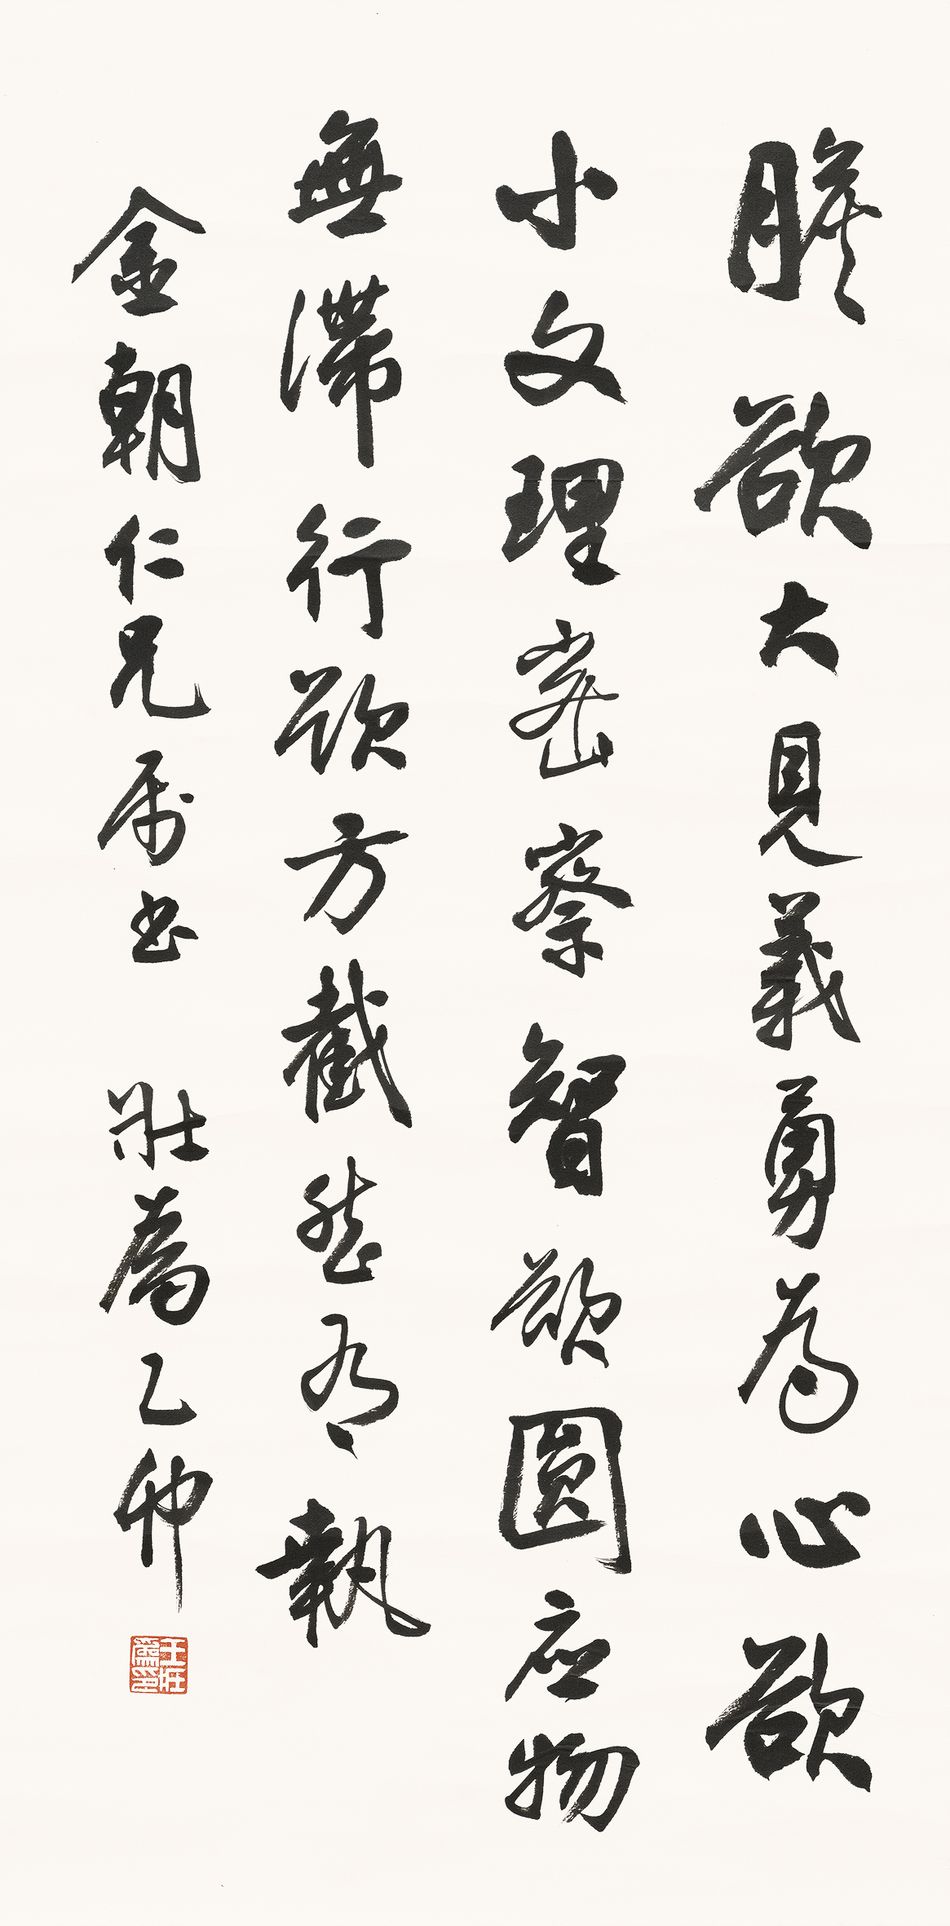 膽欲大見義勇為心欲
小文理密察智欲圓应物
無滯行欲方截然有執
金朝仁兄属书 壯為乙卯
王壯為印